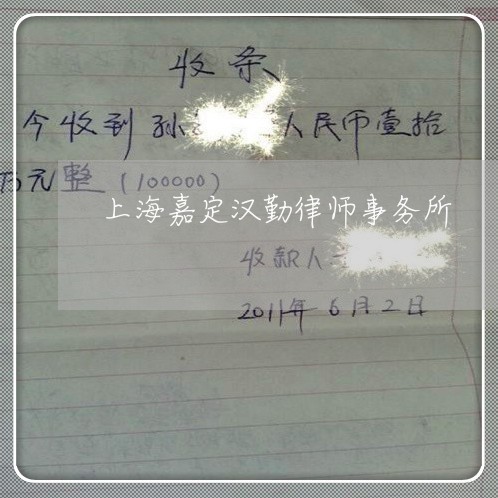 收条
今收到孙 人民币壹拾
万元整(100000)
上海嘉定汉勤律师事务所
收款人
2011年6月2日